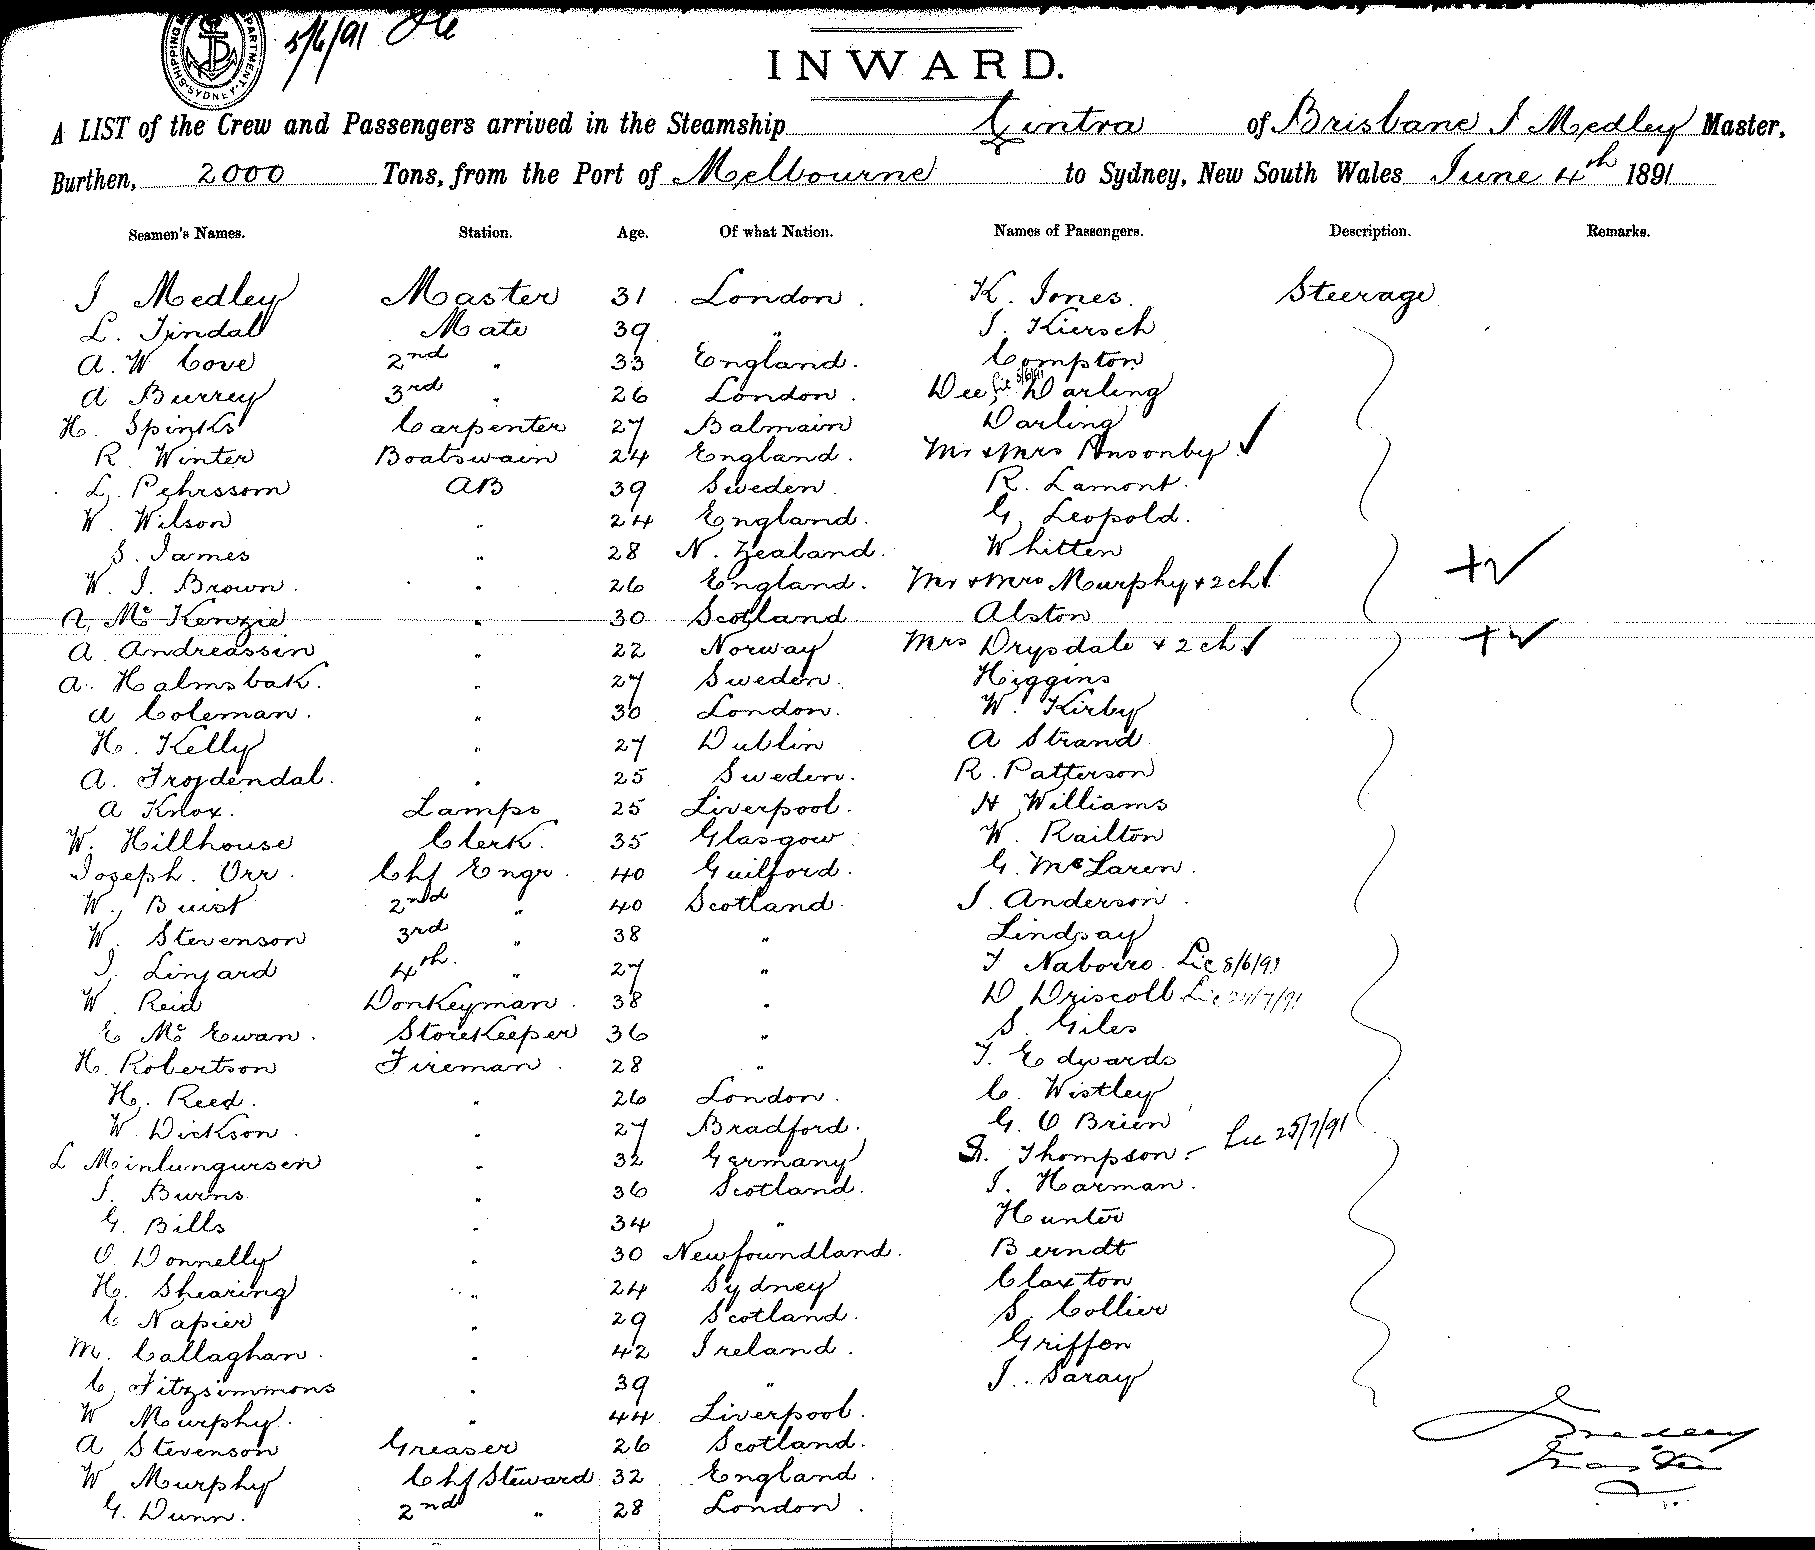 SHIPPING DEPARTMENT SYDNEY
5/6/91
INWARD.
A LIST of the Crew and Passengers arrived in the Steamship Cintra of Brisbane J Medley Master,
Burthen, 2000 Tons, from the Port of Melbourne to Sydney, New South Wales June 4th 1891
Seamen's Names. Station. Age. Of what Nation. Names of Passengers. Description. Remarks.
J Medley Master 31 London. K. Jones. Steerage
L. Tindal Mate 39 " J. Kiersch
A. W Cove 2nd " 33 England. Compton
A Burrey 3rd " 26 London. Dee, Lic 5/6/91 Darling
H. Spinks Carpenter 27 Balmain Darling
R. Winter Boatswain 24 England. Mr & Mrs Ponsonby ✓
L. Pehrssom AB 39 Sweden. R. Lamont.
W. Wilson " 24 England. G. Leopold.
S. James " 28 N. Zealand. Whitten
W. J. Brown. " 26 England. Mr & Mrs Murphy & 2 ch ✓ + ✓
A. Mc Kenzie " 30 Scotland Alston
A. Andreassin " 22 Norway Mrs Drysdale & 2 ch ✓ + ✓
A. Halmsbak. " 27 Sweden. Higgins
A Coleman. " 30 London. W. Kirby
H. Kelly " 27 Dublin A Strand
A. Frojdendal. " 25 Sweden. R. Patterson
A Knox. Lamps 25 Liverpool. H Williams
W. Hillhouse Clerk. 35 Glasgow W. Railton
Joseph. Orr. Chf Engr. 40 Guilford. G. McLaren.
W. Buist 2nd " 40 Scotland. J. Anderson.
W. Stevenson 3rd " 38 " Lindsay
J. Linjard 4th. " 27 " T Naboiro. Lic 8/6/91
W. Reid Donkeyman. 38 " D Driscoll Lic 24/7/91
E Mc Ewan. Storekeeper 36 " S. Giles
H. Robertson Fireman. 28 " T. Edwards
H. Reed. " 26 London. C. Wistley
W. Dickson. " 27 Bradford. G. O Brien
L Meinlungursen " 32 Germany Thompson. - Lic 25/7/91
J. Burns " 36 Scotland. J. Harman.
G. Bills " 34 " Hunter
O. Donnelly " 30 Newfoundland. Berndt
H. Shearing " 24 Sydney Claxton
C Napier " 29 Scotland. S. Collier
M. Callaghan. " 42 Ireland. Griffen
C. Fitzsimmons " 39 " J. Saray
W Murphy. " 44 Liverpool.
A Stevenson Greaser 26 Scotland.
W Murphy Chf Steward 32 England.
G. Dunn. 2nd " 28 London.
J Medley
Master